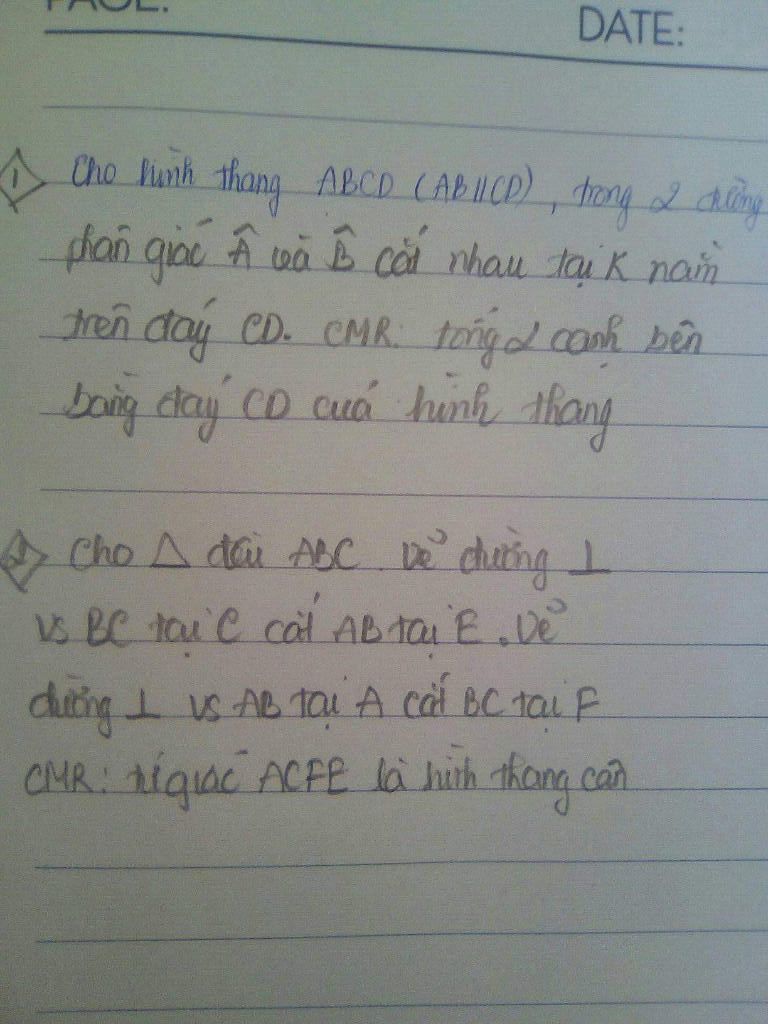 PAGE:
DATE:
1 Cho hình thang ABCD (AB//CD), trong 2 đường
phân giác Â và B̂ cắt nhau tại K nằm
trên đáy CD. CMR: tổng 2 cạnh bên
bằng đáy CD của hình thang
2 Cho △ đều ABC. Vẽ đường ⊥
vs BC tại C cắt AB tại E. Vẽ
đường ⊥ vs AB tại A cắt BC tại F
CMR: tứ giác ACFE là hình thang cân